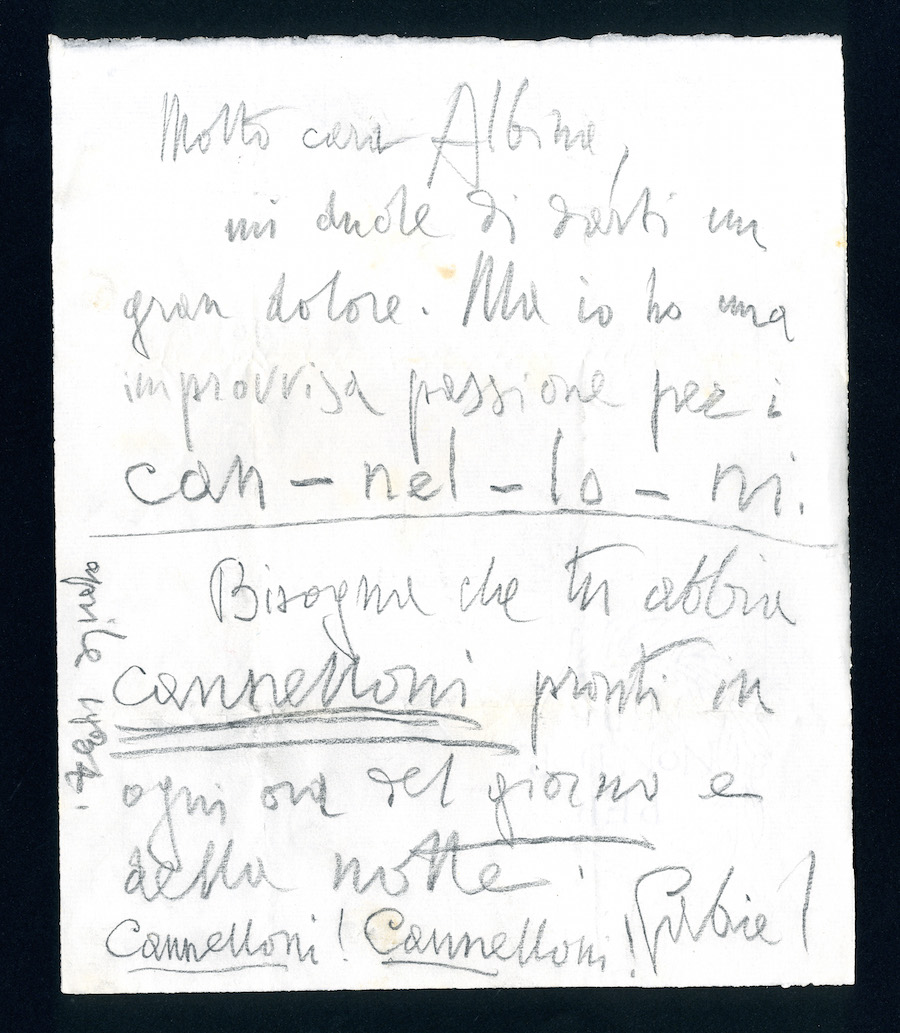 Molto cara Albina,
mi duole di dárti un
gran dolore. Ma io ho una
improvvisa passione per i
can - nel - lo - ni.
Bisogna che tu abbia
cannelloni pronti in
ogni ora del giorno e
della notte.
Cannelloni! Cannelloni!
aprile